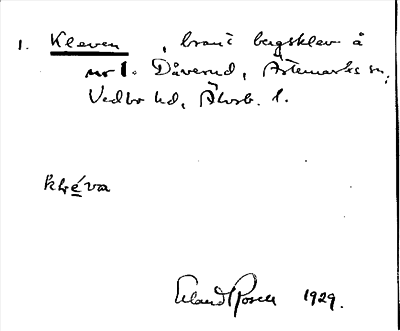 1. Kleven, brant bergsklev å
nr 1. Dåverud, Ärtemarks sn,
Vedbo hd, Älvsb. l.
klèva
Erland Rosell 1929.